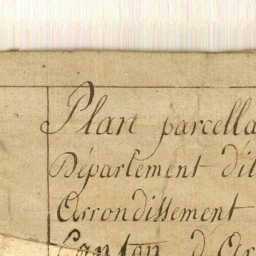 Plan parcella
Département d'il
Arrondissement
Canton d'Ar